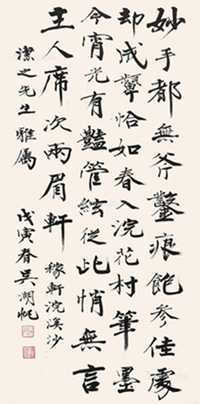 妙手都無斧鑿痕飽參佳處
却成顰恰如春入浣花村筆墨
今宵光有豔管絃從此悄無言
主人席次兩眉軒 稼軒浣溪沙
潔之先生雅屬
戊寅春吳湖帆